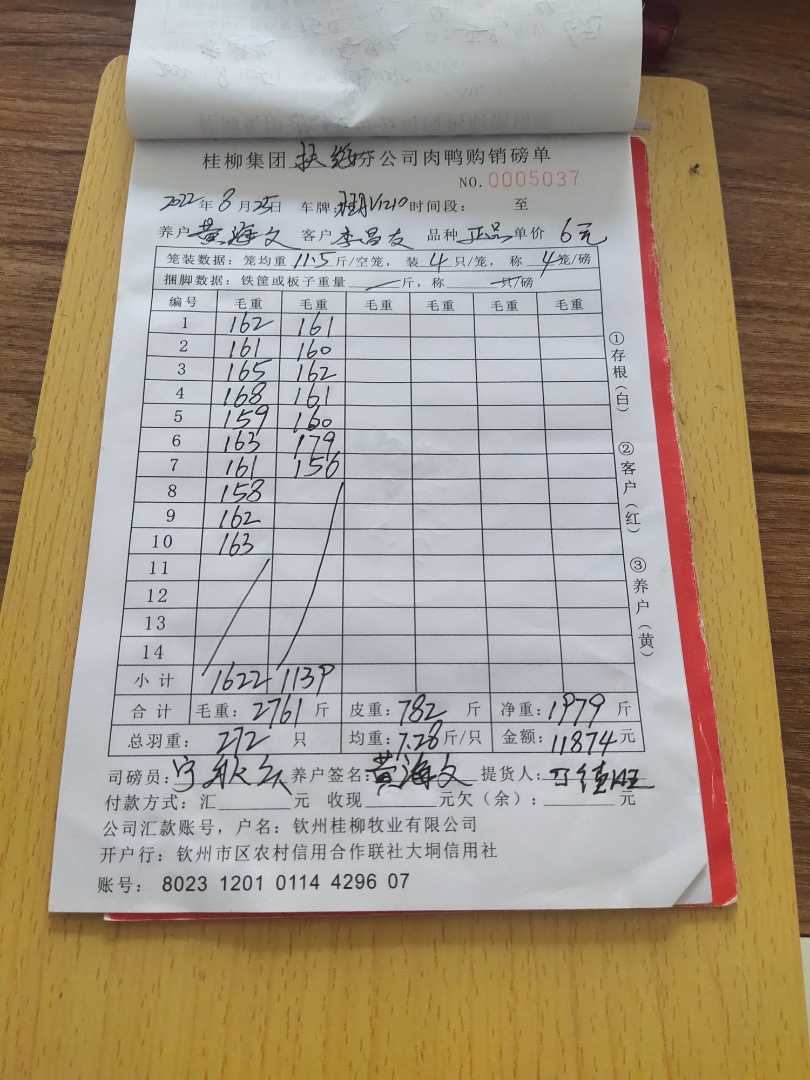 桂柳集团扶绥分公司肉鸭购销磅单
NO.0005037
2022年8月25日 车牌: V1210 时间段: 至
养户黄海文 客户李昌友 品种正品单价 6元
笼装数据:笼均重11.5斤/空笼,装4只/笼,称4笼/磅
捆脚数据:铁筐或板子重量 斤,称 只/磅
编号 毛重 毛重 毛重 毛重 毛重 毛重
1 162 161
2 161 160
3 165 162
4 168 161
5 159 160
6 163 179
7 161 156
8 158
9 162
10 163
11
12
13
14
小计 1622 1139
合计 毛重:2761斤 皮重:782斤 净重:1979斤
总羽重: 272 只 均重:7.28斤/只 金额:11874元
司磅员: 养户签名:黄海文 提货人:
付款方式:汇 元 收现 元欠(余): 元
公司汇款账号,户名:钦州桂柳牧业有限公司
开户行:钦州市区农村信用合作联社大垌信用社
账号: 8023 1201 0114 4296 07
①存根(白)
②客户(红)
③养户(黄)